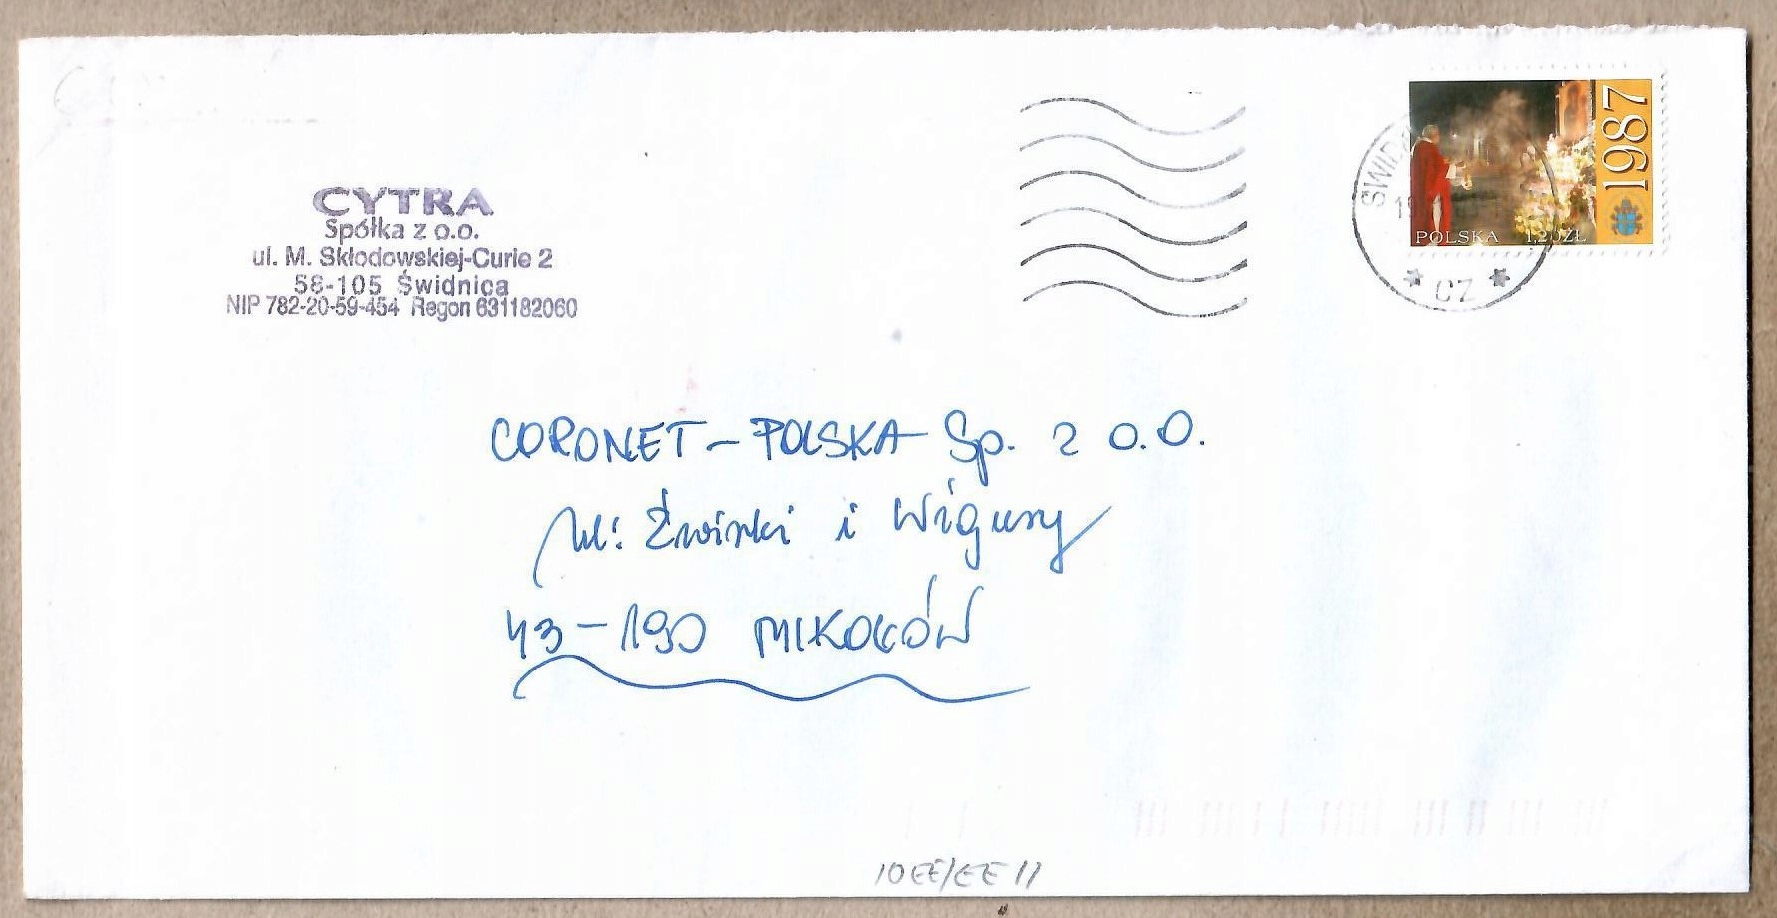 CYTRA
Spółka z o.o.
ul. M. Skłodowskiej-Curie 2
58-105 Świdnica
NIP 782-20-59-454 Regon 631182060
1987
POLSKA 1,20 ZŁ
ŚWID
* CZ *
CORONET-POLSKA Sp. z o.o.
ul. Żwirki i Wigury
43-190 MIKOŁÓW
10EE/EE11